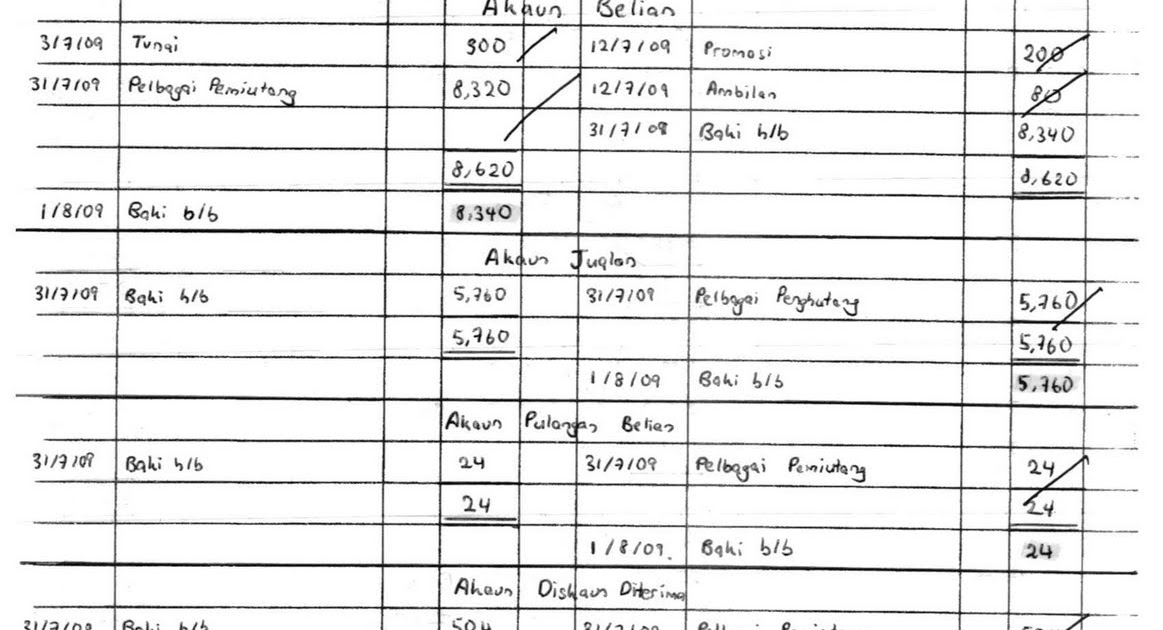 Akaun Belian
3/7/09 Tunai 300 12/7/09 Promosi 200
31/7/09 Pelbagai Pemiutang 8,320 12/7/09 Ambilan 80
31/7/09 Baki h/b 8,340
8,620 8,620
1/8/09 Baki b/b 8,340
Akaun Jualan
31/7/09 Baki h/b 5,760 31/7/09 Pelbagai Penghutang 5,760
5,760 5,760
1/8/09 Baki b/b 5,760
Akaun Pulangan Belian
31/7/09 Baki h/b 24 31/7/09 Pelbagai Pemiutang 24
24 24
1/8/09. Baki b/b 24
Akaun Diskaun Diterima
31/7/09 Baki h/b 504 31/7/09 Pelbagai Pemiutang